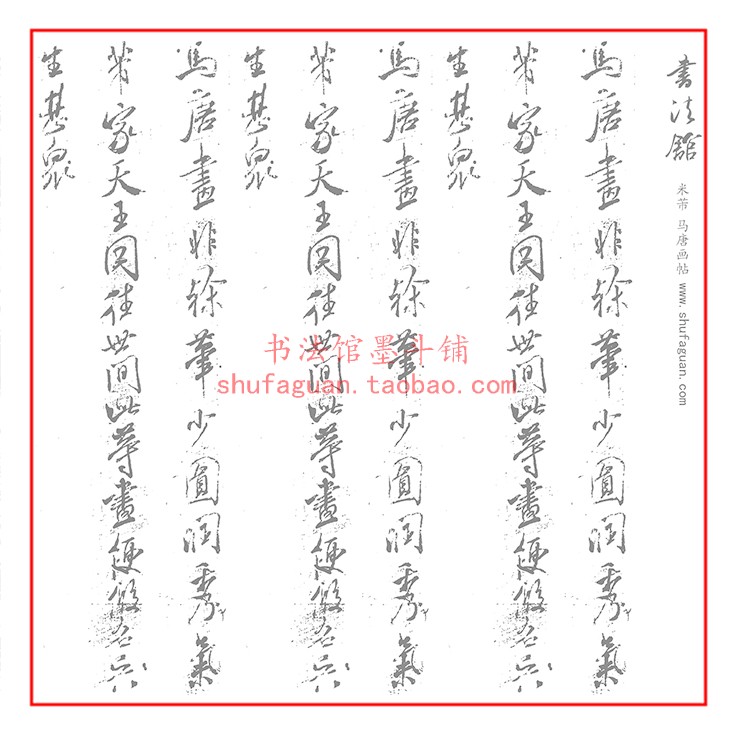 書法館
米芾 马唐画帖 www.shufaguan.com
馬唐畫非徐筆少圓潤秀氣
芾家天王往世間此等畫便假名吳
生甚衆
馬唐畫非徐筆少圓潤秀氣
芾家天王往世間此等畫便假名吳
生甚衆
馬唐畫非徐筆少圓潤秀氣
芾家天王往世間此等畫便假名吳
生甚衆
书法馆墨斗铺
shufaguan.taobao.com